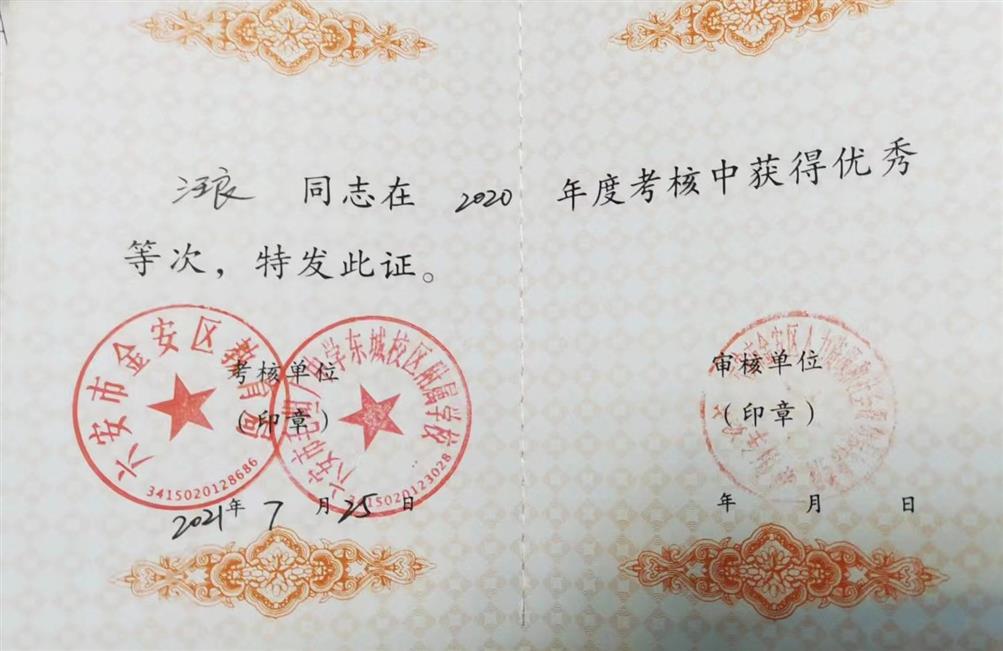 汪良 同志在 2020 年度考核中获得优秀
等次，特发此证。
六安市金安区教育局
3415020128686
考核单位
（印章）
东城校区附属学校
3415020123028
2021年7月25日
审核单位
（印章）
年 月 日